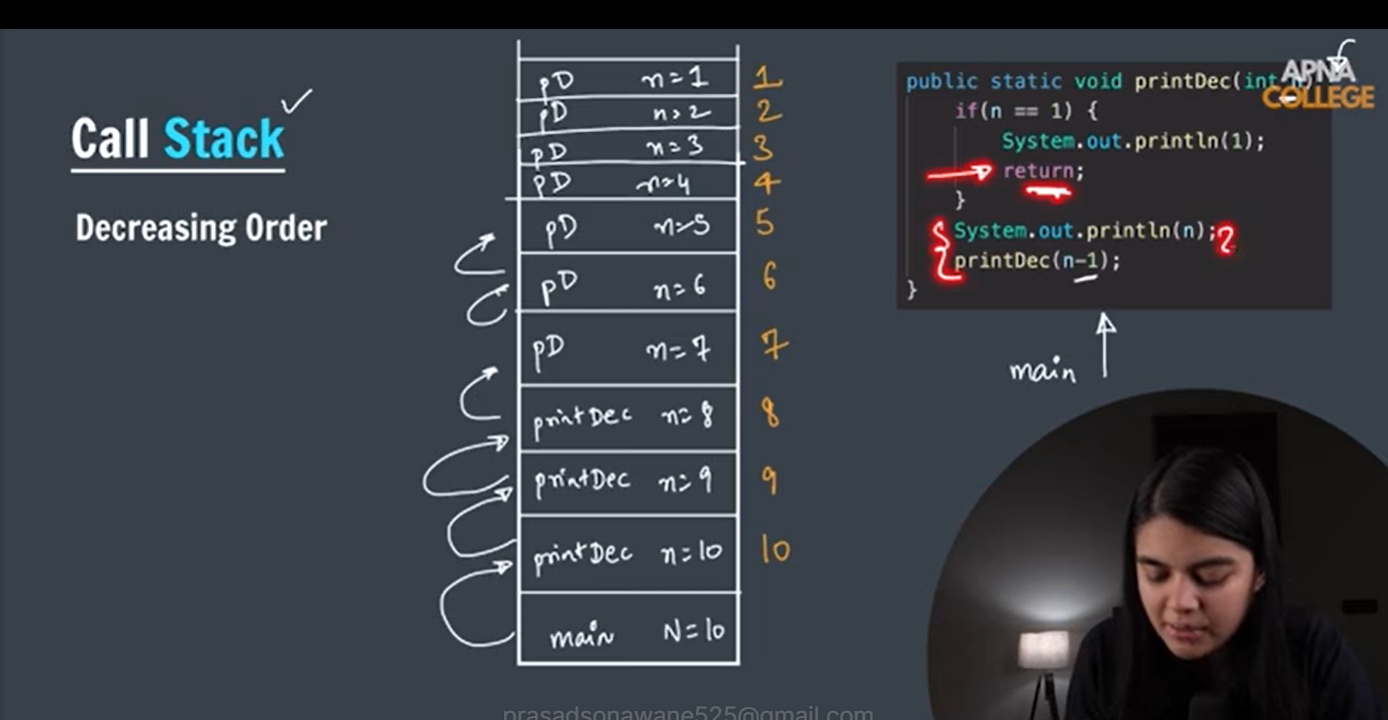 Call Stack
Decreasing Order
pD n=1 1
pD n=2 2
pD n=3 3
pD n=4 4
pD n=5 5
pD n=6 6
pD n=7 7
printDec n=8 8
printDec n=9 9
printDec n=10 10
main N=10
APNA
COLLEGE
public static void printDec(int
if(n == 1) {
System.out.println(1);
return;
}
System.out.println(n);
printDec(n-1);
}
main
prasadsonawane525@gmail.com